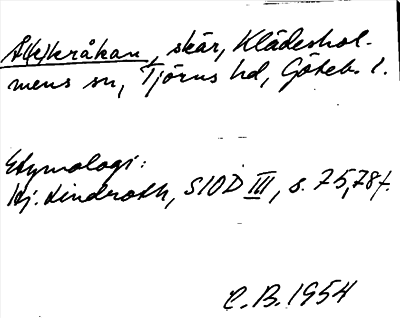 Å(le)kråkan, skär, Klädeshol-
mens sn, Tjörns hd, Göteb. l.
Etymologi:
Hj. Lindroth, SIOD III, s. 75, 78 f.
C.B. 1954